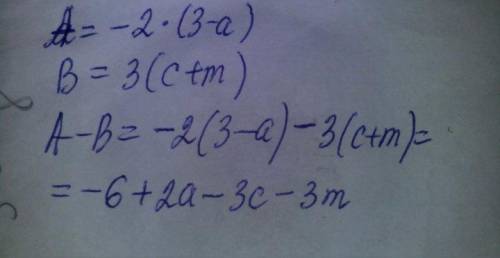 A = -2·(3-a)
B = 3(c+m)
A-B = -2(3-a)-3(c+m)=
= -6+2a-3c-3m